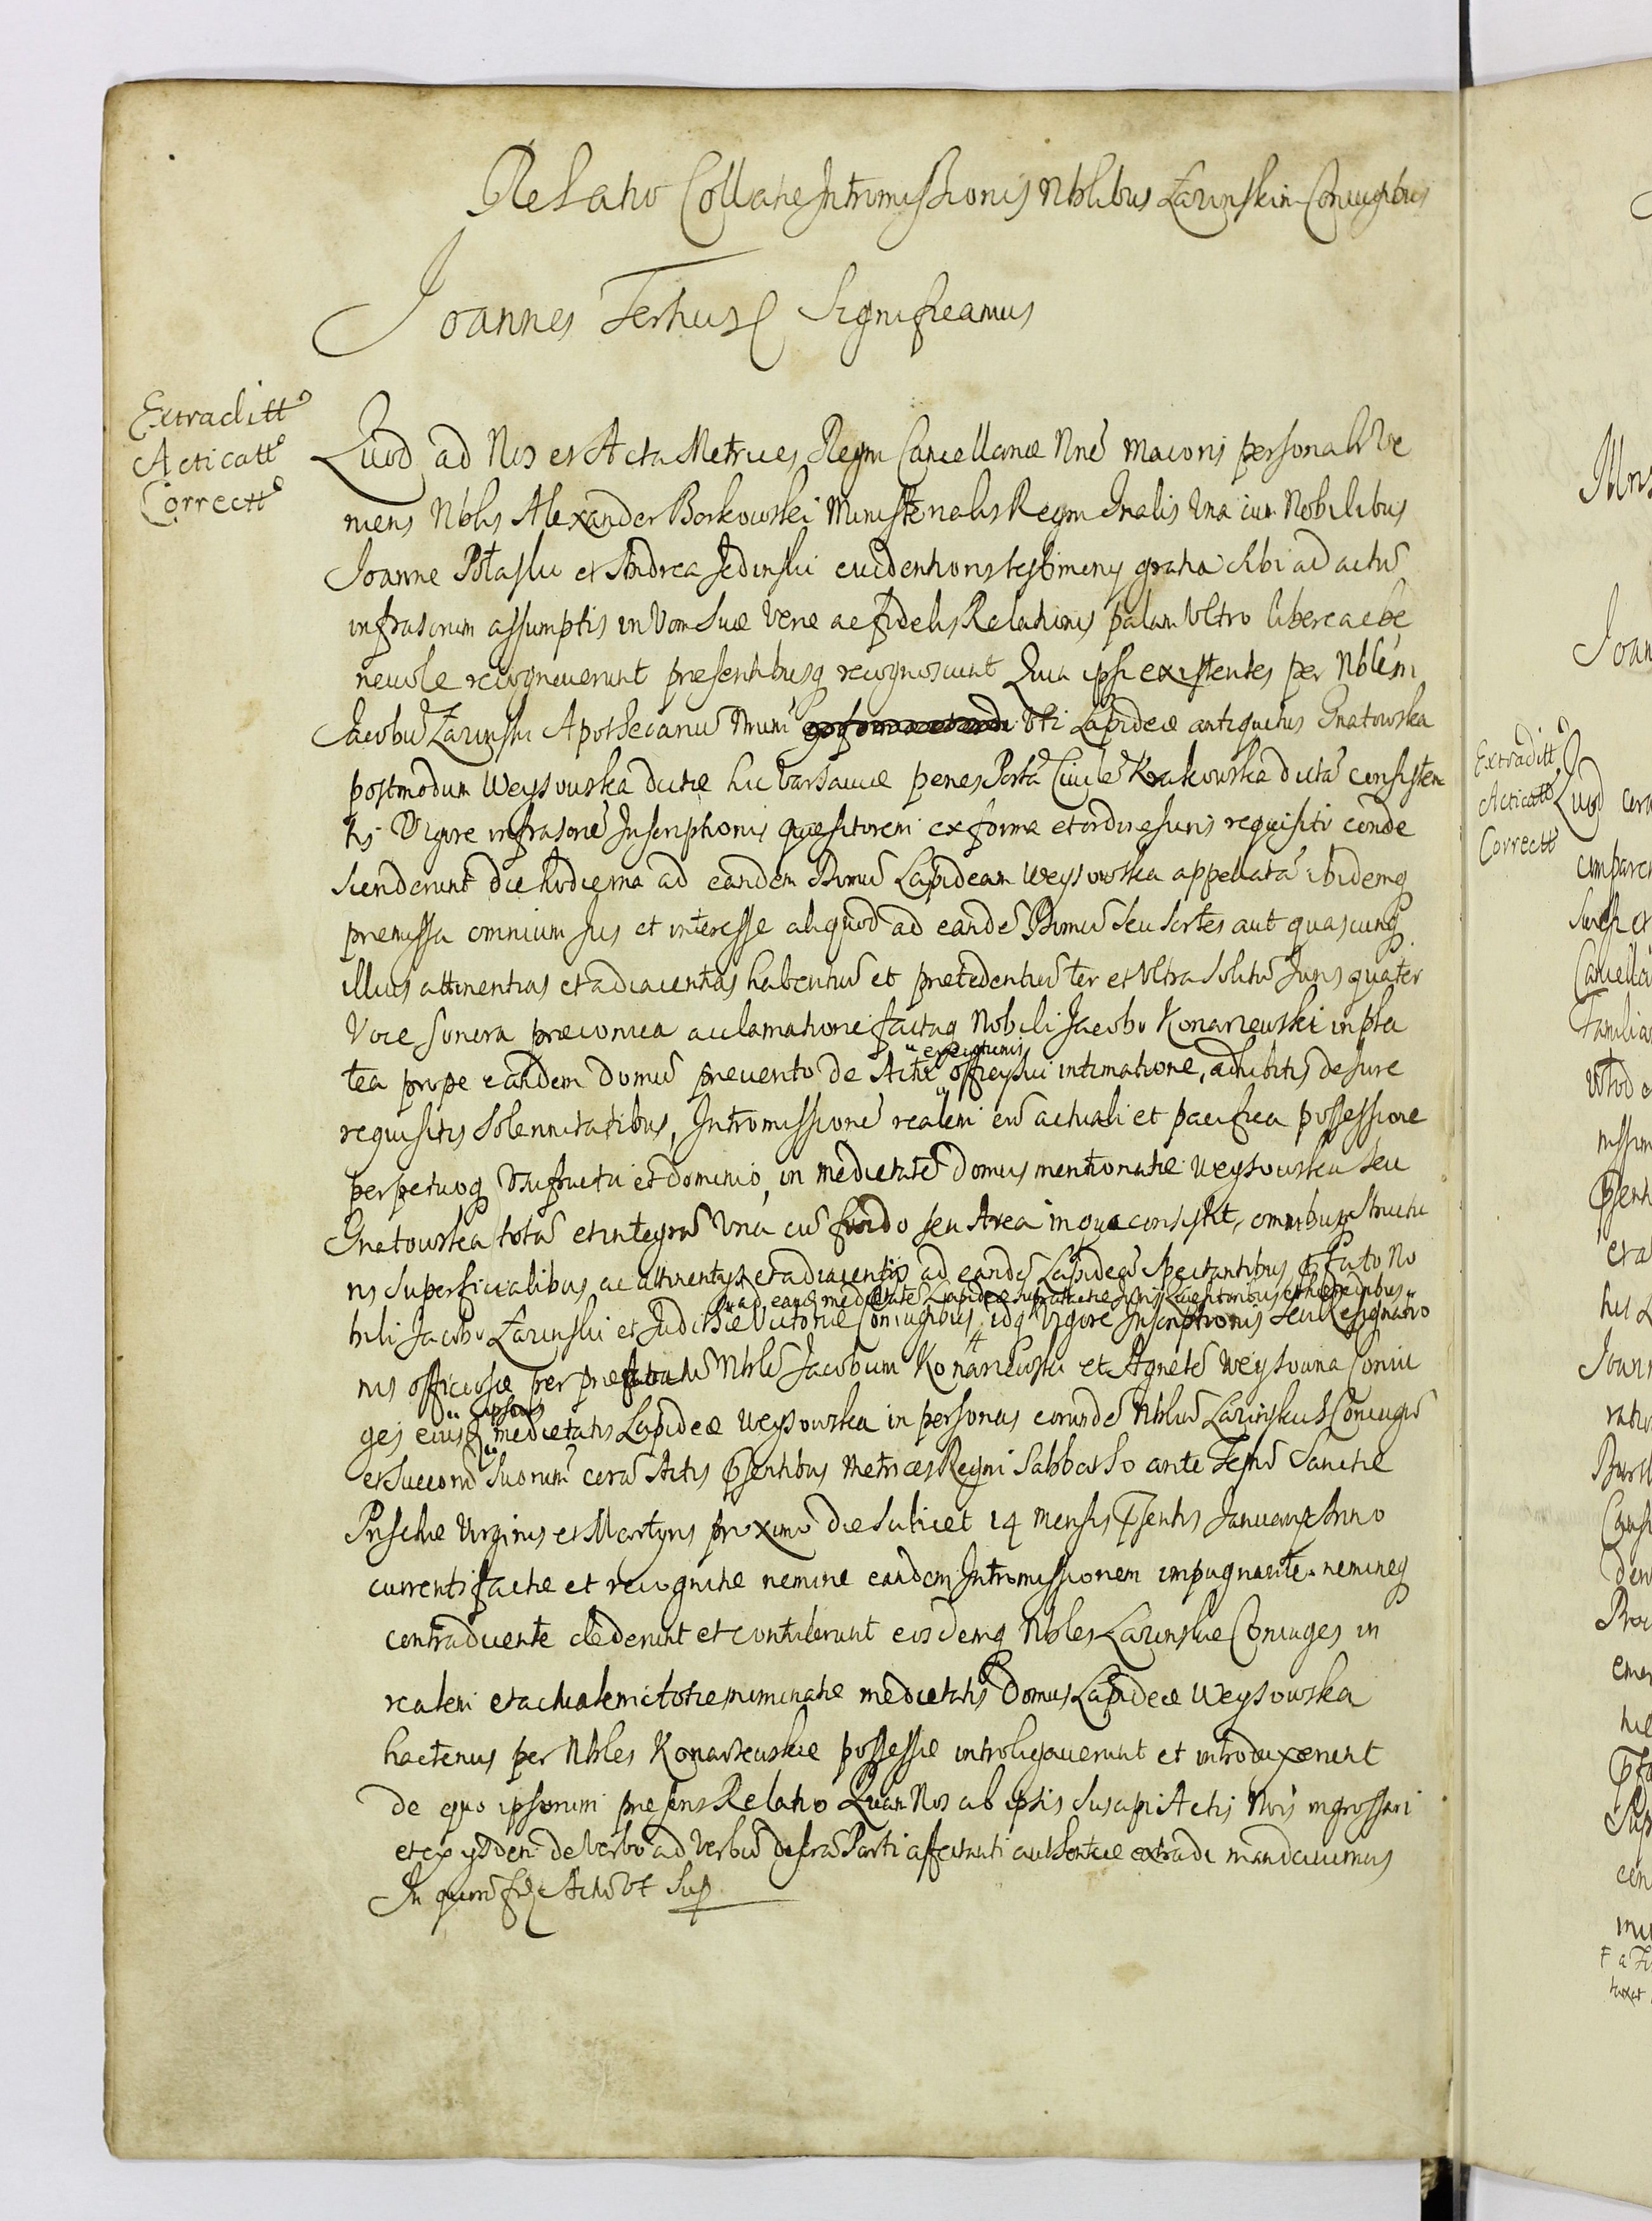 Relatio Collatae Intromissionis Nblibus Łazinskim Coniugibus
Joannes Tertius Significamus
Extraditt
Acticatt
Correctt
Quod ad Nos et Acta Metrices Regni Cancellariae Nrae Maioris personalr ve
niens Nblis Alexander Borkowski Ministerialis Regni Gnalis Una cum Nobilibus
Joanne et Andrea Jedinski evidentioris testimonij gratia sibi ad actu
infrascrum assumptis in Vim Suae Verae ac fidelis Relationis palam Ultro libere ac be
nevole recognoverunt presentibusq recognoscunt Quia ipsi existentes per Nblem
Jacobu Łazinski Apothecariu uti Lapideae antiquitus Gnatowska
postmodum Weysowska dictae hic Varsaviae penes Portã Civile Krakowska dictã consisten
tis Vigore infrascrae Inscriptionis Quaesitorem ex forma et ordine Juris requisiti conde
scenderunt die hodierna ad eandem Domu Lapideam Weysowska appellatã ibidemq
premissa omnium Jus et interesse aliquod ad eandẽ Domu Seu Sortes aut quascunq
illius attinentias et adiacentias habentiu et pretedentiu ter et Ultra Solitu Juris quater
Voce Sonora praeconica acclamatione factaq Nobili Jacobo Konarzewski in pla
tea prope eandem Domu prevento de Actu executionis officij sui intimatione, adhibitis de Jure
requisitis Solennitatibus, Intromissionẽ realem cu actuali et pacifica possessione
perpetuoq Usufructu et dominio, in medietatẽ Domus mentionatae Weysowska Seu
Gnatowska totã et integrã Una cũ fundo seu Area in qua consistit, omnibusq Structu
ris Superficialibus ac attinentijs et adiacentijs ad eandẽ Lapideã Spectantibus pfato No
ad eand medietatẽ Lapideae Quaesitoribus
bili Jacobo Łazinski et Judithae Victoriae Coniugibus, idq Vigore Inscriptionis Seu Resignatio
nis officiosae per Nblẽ Jacobum Konarzewski et Agnetẽ Weysovna Coniu
ges eiusd ipsoris medietatis Lapideae Weysowska in personas eorundẽ Nbliu Łazinskich Coniugu
et Succoru Suorum corã Actis psentibus Metrices Regni Sabbatho ante Festu Sanctae
Priscae Virginis et Martyris proximo die Scilicet 14 Mensis psentis Januarij Anno
currenti factae et recognitae nemine eandem Intromissionem impugnante nemineq
contradicente dederunt et contulerunt eosdemq Nbles Łazinskie Coniuges in
realem et actualem toties nominatae medietatis Domus Lapideae Weysowska
hactenus per Nbles Konarzewskie possessae introligaverunt et introduxerunt
de quo ipsorum presens Relatio Quam Nos ab ipsis Suscipi Actis Nris ingrossari
et ex ijsdem de Verbo ad Verbu descrã Parti affectanti authentice extradi mandavimus
In quoru fid Actu Ut Sup
Extraditt
Acticatt
Correctt